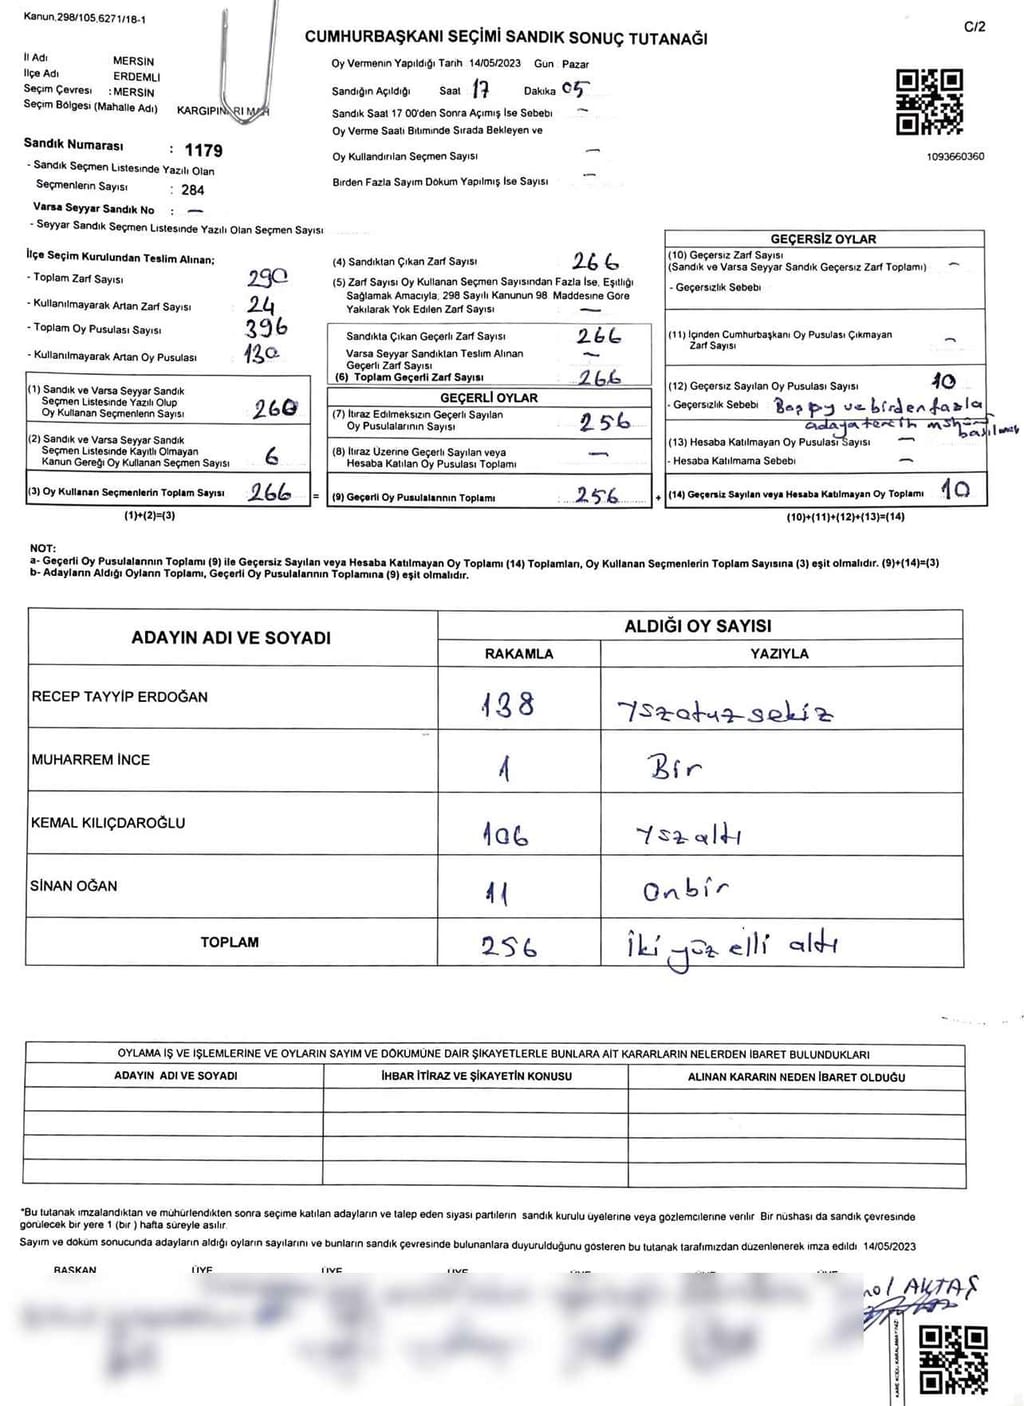 Kanun.298/105,6271/18-1
C/2
CUMHURBAŞKANI SEÇİMİ SANDIK SONUÇ TUTANAĞI
İl Adı MERSİN
İlçe Adı ERDEMLİ
Seçim Çevresi : MERSİN
Seçim Bölgesi (Mahalle Adı) KARGIPIN RI MAH
Oy Vermenin Yapıldığı Tarih 14/05/2023 Gün Pazar
Sandığın Açıldığı Saat 17 Dakika 05
Sandık Saat 17 00'den Sonra Açımış İse Sebebi —
Oy Verme Saati Bitiminde Sırada Bekleyen ve
Oy Kullandırılan Seçmen Sayısı —
Birden Fazla Sayım Döküm Yapılmış İse Sayısı —
1093660360
Sandık Numarası : 1179
- Sandık Seçmen Listesinde Yazılı Olan
Seçmenlerin Sayısı : 284
Varsa Seyyar Sandık No : —
- Seyyar Sandık Seçmen Listesinde Yazılı Olan Seçmen Sayısı
İlçe Seçim Kurulundan Teslim Alınan;
- Toplam Zarf Sayısı 290
- Kullanılmayarak Artan Zarf Sayısı 24
- Toplam Oy Pusulası Sayısı 396
- Kullanılmayarak Artan Oy Pusulası 130
(1) Sandık ve Varsa Seyyar Sandık
Seçmen Listesinde Yazılı Olup
Oy Kullanan Seçmenlerin Sayısı 260
(2) Sandık ve Varsa Seyyar Sandık
Seçmen Listesinde Kayıtlı Olmayan
Kanun Gereği Oy Kullanan Seçmen Sayısı 6
(3) Oy Kullanan Seçmenlerin Toplam Sayısı 266 =
(1)+(2)=(3)
(4) Sandıktan Çıkan Zarf Sayısı 266
(5) Zarf Sayısı Oy Kullanan Seçmen Sayısından Fazla İse, Eşitliği
Sağlamak Amacıyla, 298 Sayılı Kanunun 98 Maddesine Göre
Yakılarak Yok Edilen Zarf Sayısı —
Sandıkta Çıkan Geçerli Zarf Sayısı 266
Varsa Seyyar Sandıktan Teslim Alınan
Geçerli Zarf Sayısı —
(6) Toplam Geçerli Zarf Sayısı 266
GEÇERLİ OYLAR
(7) İtiraz Edilmeksizin Geçerli Sayılan
Oy Pusulalarının Sayısı 256
(8) İtiraz Üzerine Geçerli Sayılan veya
Hesaba Katılan Oy Pusulası Toplamı —
(9) Geçerli Oy Pusulalarının Toplamı 256 +
GEÇERSİZ OYLAR
(10) Geçersiz Zarf Sayısı
(Sandık ve Varsa Seyyar Sandık Geçersiz Zarf Toplamı) —
- Geçersizlik Sebebi
(11) İçinden Cumhurbaşkanı Oy Pusulası Çıkmayan
Zarf Sayısı —
(12) Geçersiz Sayılan Oy Pusulası Sayısı 10
- Geçersizlik Sebebi ve birden fazla
adaya tercih
(13) Hesaba Katılmayan Oy Pusulası Sayısı —
- Hesaba Katılmama Sebebi —
(14) Geçersiz Sayılan veya Hesaba Katılmayan Oy Toplamı 10
(10)+(11)+(12)+(13)=(14)
NOT:
a- Geçerli Oy Pusulalarının Toplamı (9) ile Geçersiz Sayılan veya Hesaba Katılmayan Oy Toplamı (14) Toplamları, Oy Kullanan Seçmenlerin Toplam Sayısına (3) eşit olmalıdır. (9)+(14)=(3)
b- Adayların Aldığı Oyların Toplamı, Geçerli Oy Pusulalarının Toplamına (9) eşit olmalıdır.
ADAYIN ADI VE SOYADI
ALDIĞI OY SAYISI
RAKAMLA YAZIYLA
RECEP TAYYİP ERDOĞAN 138 Yüzotuzsekiz
MUHARREM İNCE 1 Bir
KEMAL KILIÇDAROĞLU 106 Yüzaltı
SİNAN OĞAN 11 Onbir
TOPLAM 256 İki yüz elli altı
OYLAMA İŞ VE İŞLEMLERİNE VE OYLARIN SAYIM VE DÖKÜMÜNE DAİR ŞİKAYETLERLE BUNLARA AİT KARARLARIN NELERDEN İBARET BULUNDUKLARI
ADAYIN ADI VE SOYADI İHBAR İTİRAZ VE ŞİKAYETİN KONUSU ALINAN KARARIN NEDEN İBARET OLDUĞU
*Bu tutanak imzalandıktan ve mühürlendikten sonra seçime katılan adayların ve talep eden siyasi partilerin sandık kurulu üyelerine veya gözlemcilerine verilir Bir nüshası da sandık çevresinde
görülecek bir yere 1 (bir) hafta süreyle asılır
Sayım ve döküm sonucunda adayların aldığı oyların sayılarını ve bunların sandık çevresinde bulunanlara duyurulduğunu gösteren bu tutanak tarafımızdan düzenlenerek imza edildi 14/05/2023
BAŞKAN ÜYE ÜYE ÜYE
AKTAŞ